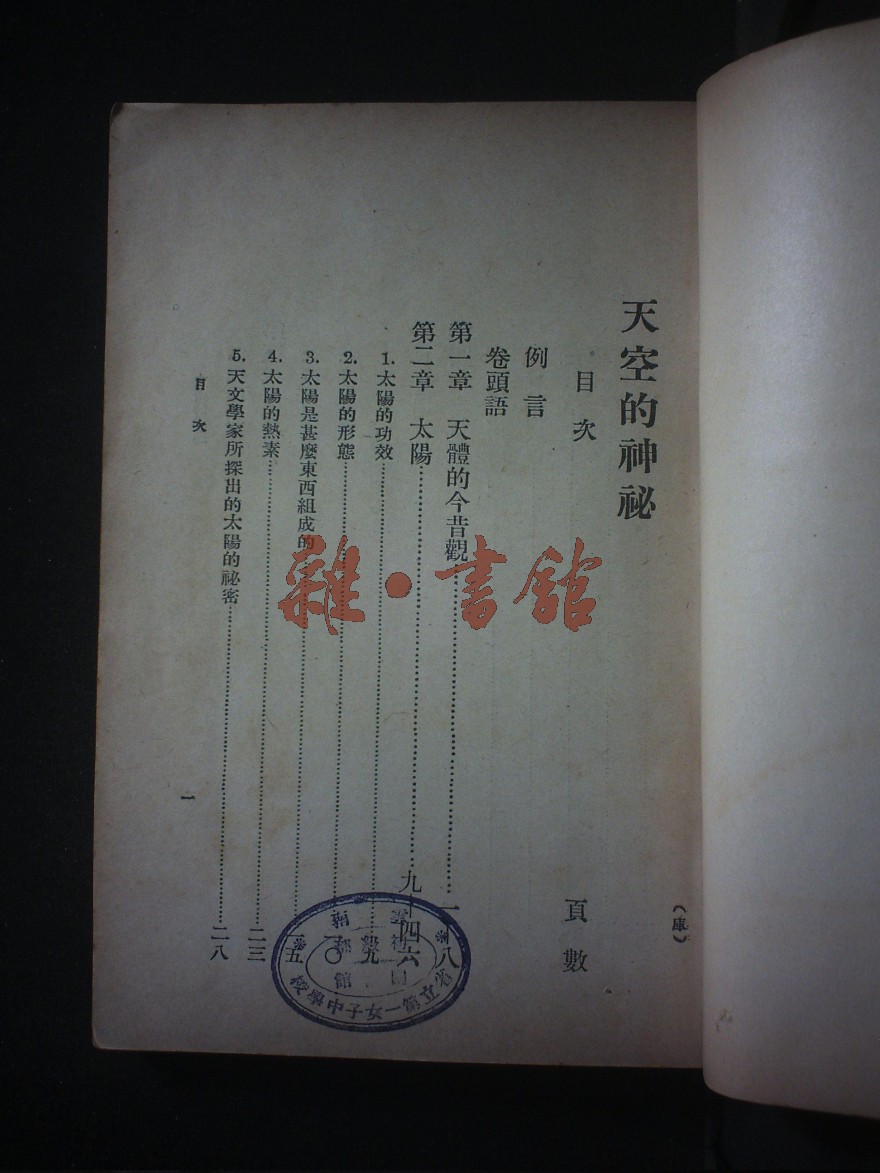 天空的神祕
目次
頁數
例言
卷頭語
第一章 天體的今昔觀……一—八
第二章 太陽……九—四六
1. 太陽的功效……九
2. 太陽的形態……一〇
3. 太陽是甚麼東西組成的……一五
4. 太陽的熱素……二三
5. 天文學家所探出的太陽的祕密……二八
目次
一
(庫)
雜·書館
省立第一女子中學校